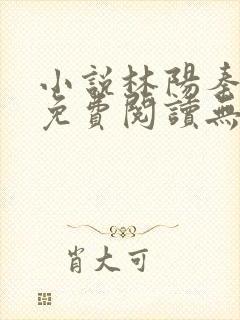 小說林陽秦
免費閱讀無
肖大可